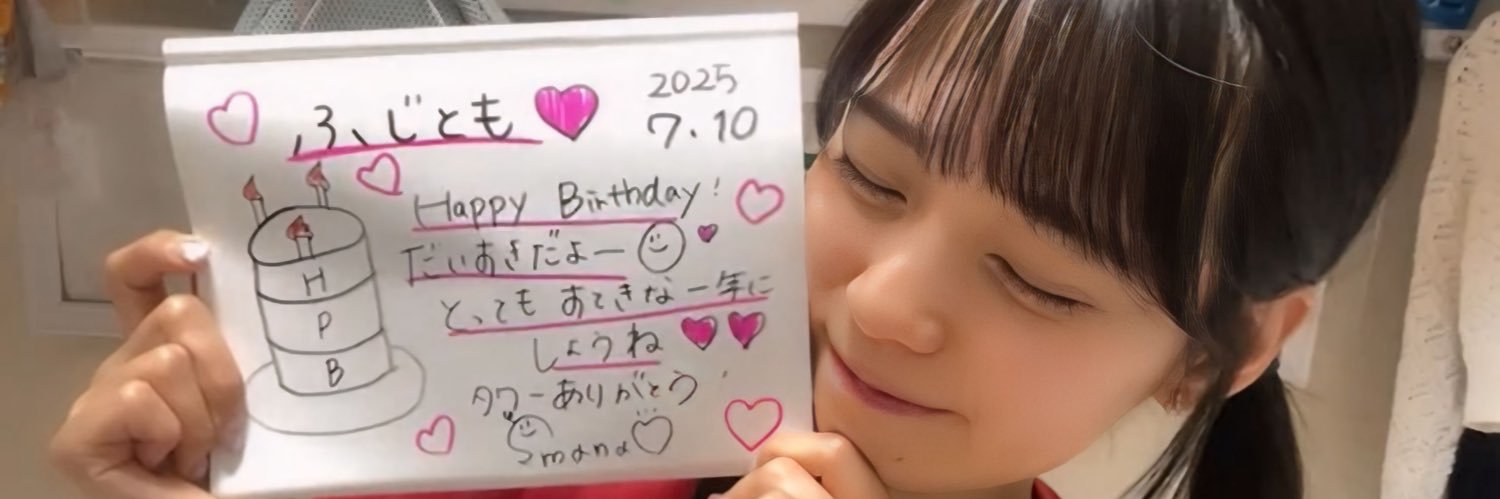 ふじとも
2025
7.10
Happy Birthday!
だいすきだよー
とってもすてきな一年に
しようね
タワーありがとう
mana
H
P
B